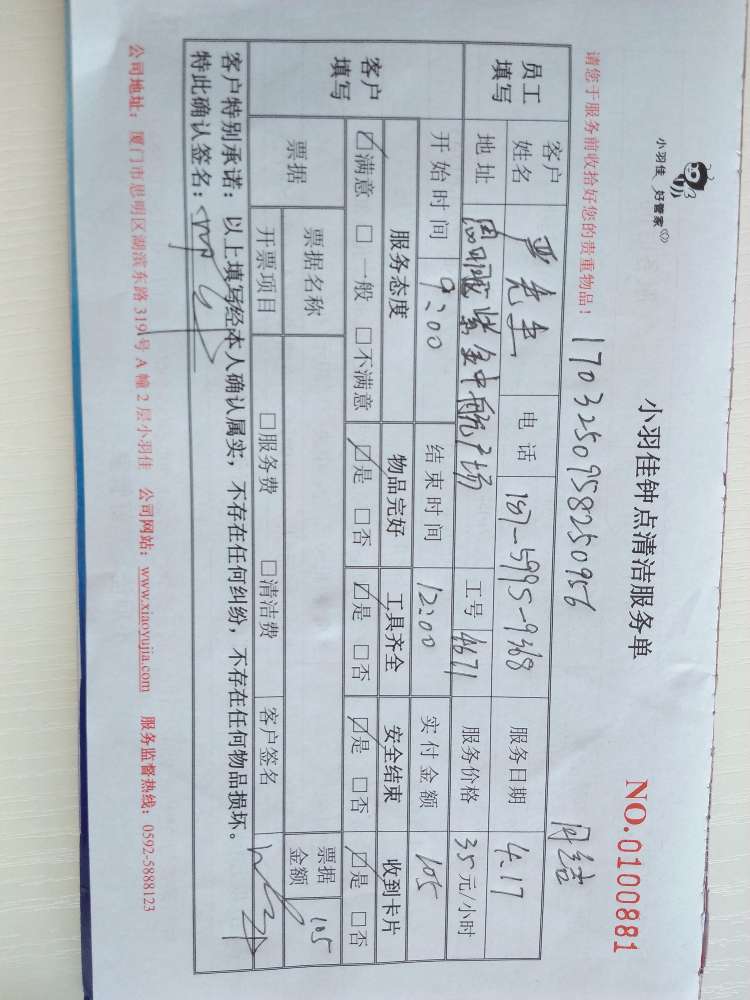 小羽佳 好管家
小羽佳钟点清洁服务单
NO.0100881
请您于服务前收拾好您的贵重物品！
1703250958250956
月结
员工填写
客户姓名 严先生 电话 157-5995-9368 服务日期 4.17
地址 思明区紫金中航广场 工号 4671 服务价格 35元/小时
客户填写
开始时间 9:00 结束时间 12:00 实付金额 105
服务态度 物品完好 工具齐全 安全结束 收到卡片
☑满意 □一般 □不满意 ☑是 □否 ☑是 □否 ☑是 □否 ☑是 □否
票据
票据名称 票据金额 105
开票项目 □服务费 □清洁费 客户签名
客户特别承诺：以上填写经本人确认属实，不存在任何纠纷，不存在任何物品损坏。
特此确认签名：
公司地址：厦门市思明区湖滨东路319号A幢2层小羽佳 公司网站：www.xiaoyujia.com 服务监督热线：0592-5888123